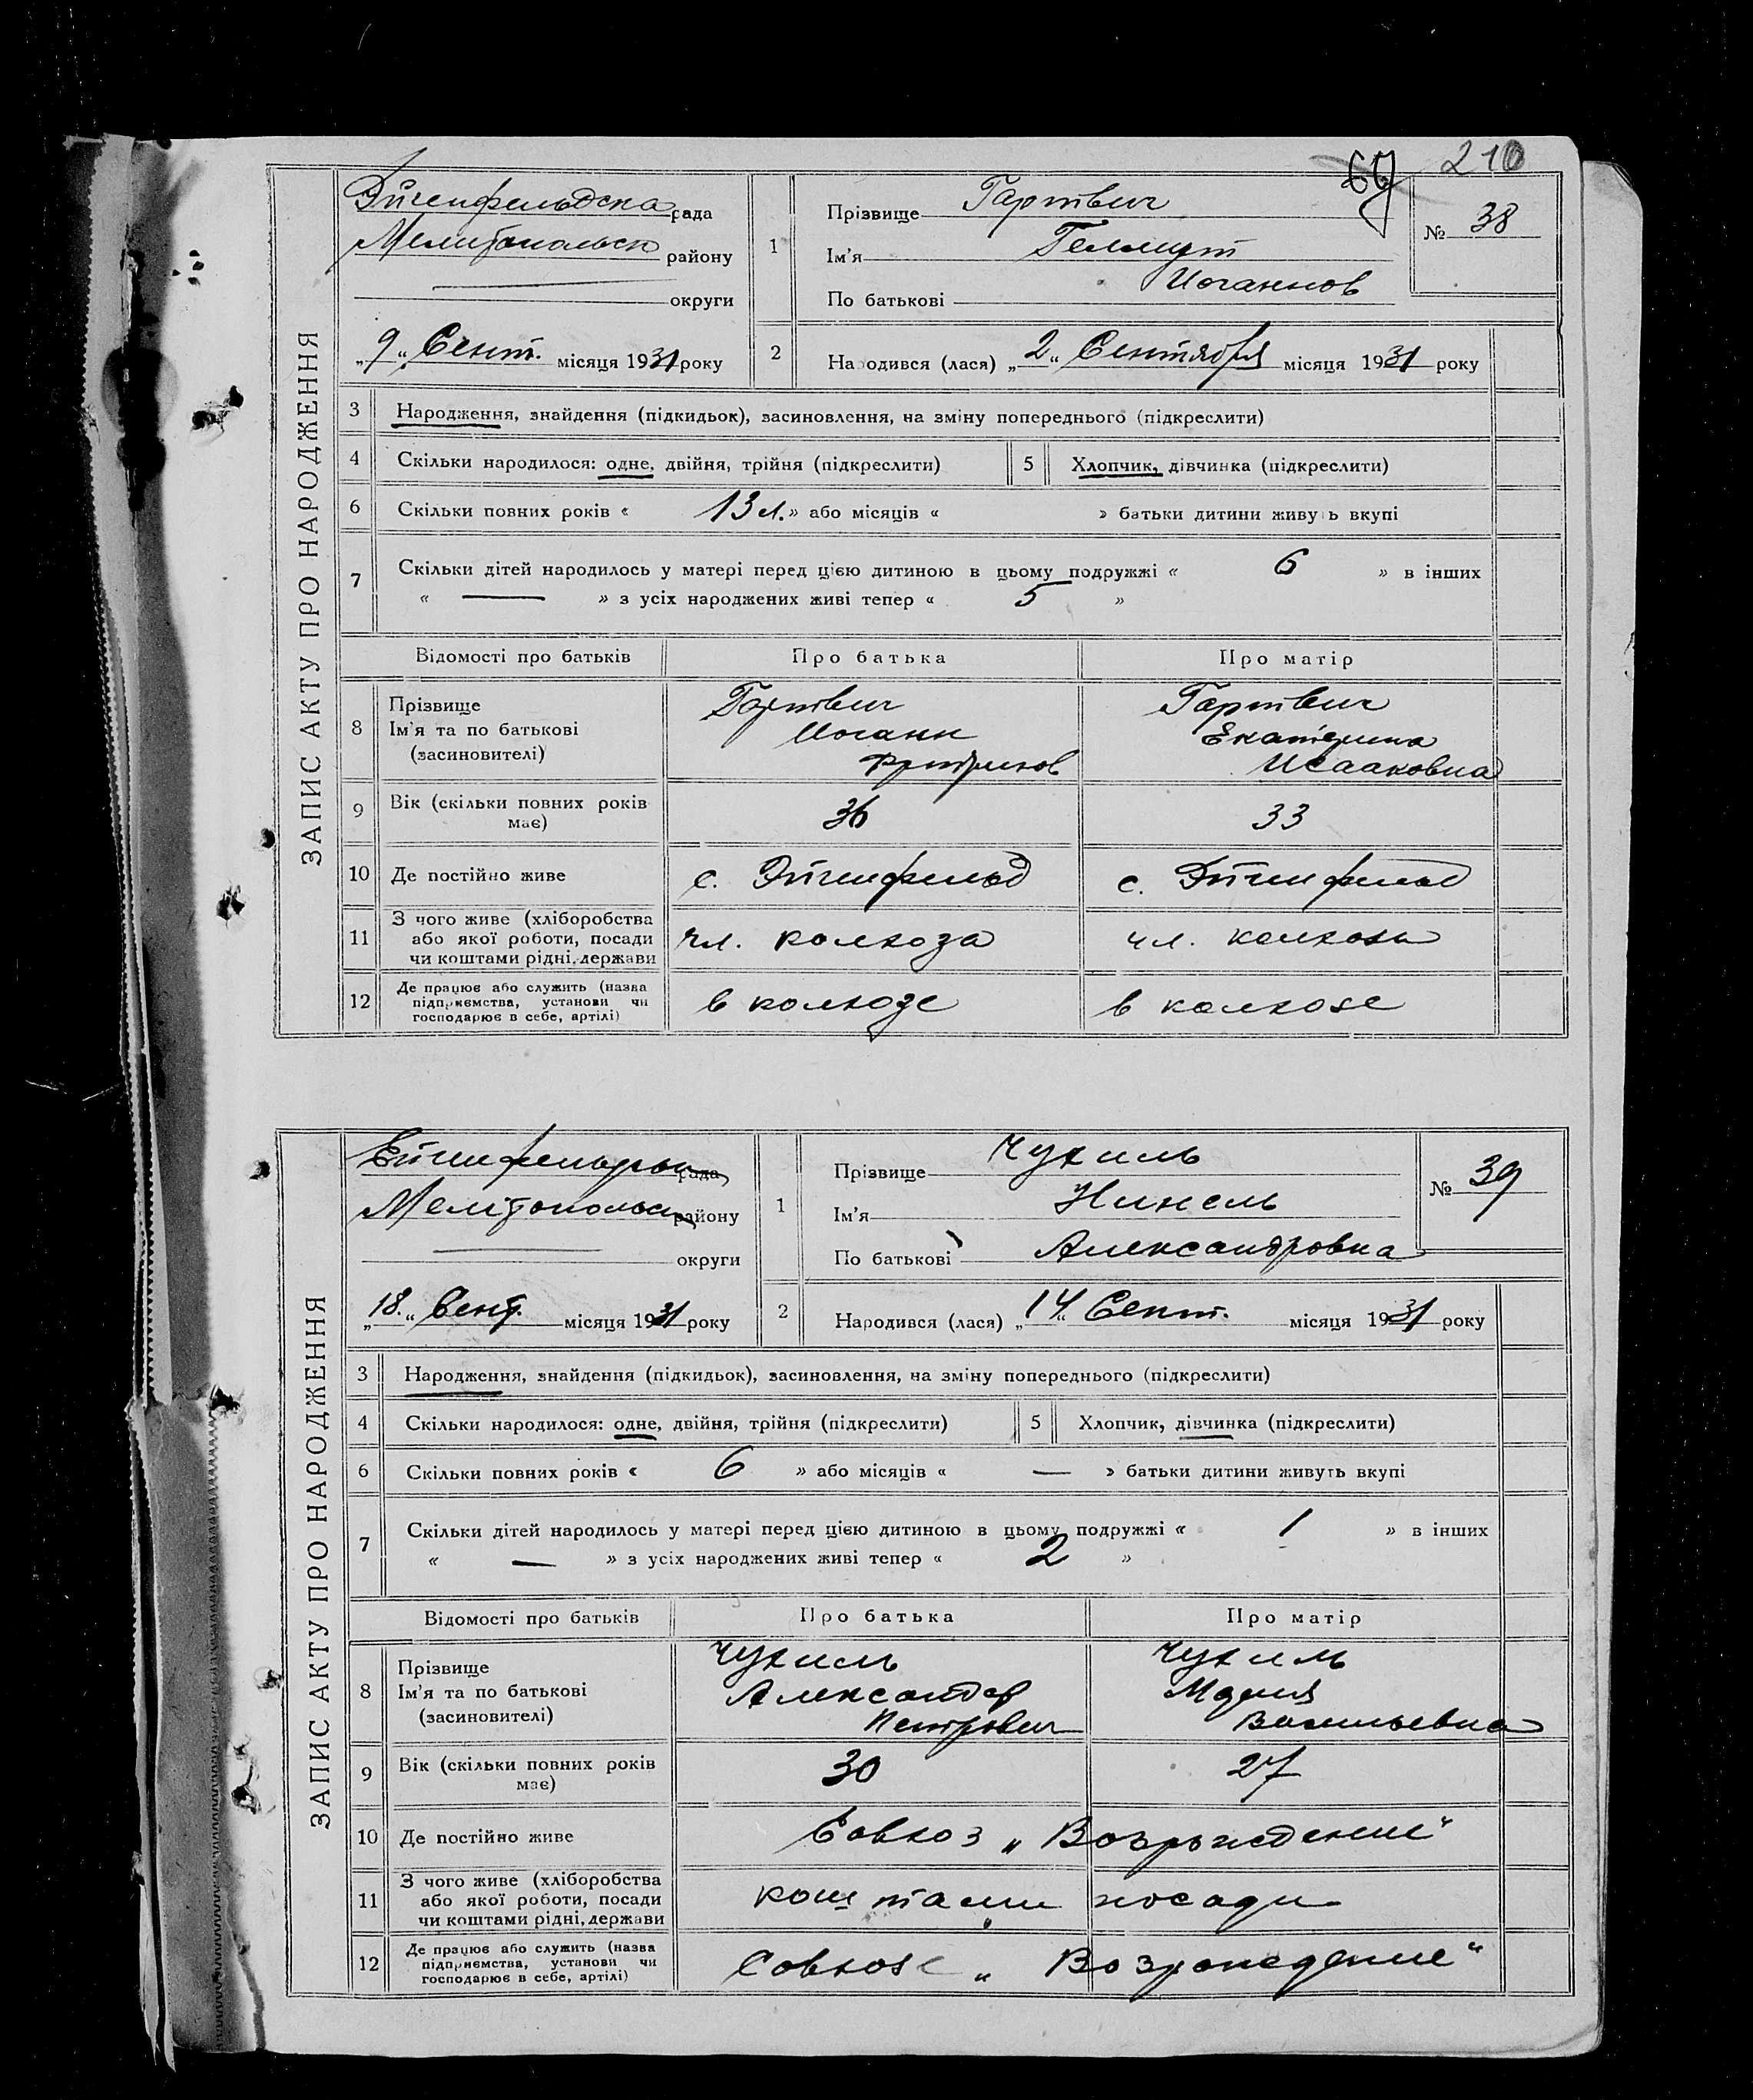 69 210
ЗАПИС АКТУ ПРО НАРОДЖЕННЯ
Эйгенфельдска рада
Мелитопольск району
округи
„9“ Сент. місяця 1931 року
1
Прізвище Гартвиг
Ім'я Гелмут
По батькові Иоганнов
№ 38
2
Народився (лася) „2“ Сентября місяця 1931 року
3 Народження, знайдення (підкидьок), засиновлення, на зміну попереднього (підкреслити)
4 Скільки народилося: одне, двійня, трійня (підкреслити) 5 Хлопчик, дівчинка (підкреслити)
6 Скільки повних років « 13 л. » або місяців « » батьки дитини живуть вкупі
7 Скільки дітей народилось у матері перед цією дитиною в цьому подружжі « 6 » в інших
« — » з усіх народжених живі тепер « 5 »
Відомості про батьків Про батька Про матір
8 Прізвище Гартвиг Гартвиг
Ім'я та по батькові Иоганн Екатерина
(засиновителі) Фридрихов Исааковна
9 Вік (скільки повних років має) 36 33
10 Де постійно живе с. Эйгенфельд с. Эйгенфельд
11 З чого живе (хліборобства або якої роботи, посади чи коштами рідні, держави чл. колхоза чл. колхоза
12 Де працює або служить (назва підприємства, установи чи господарює в себе, артілі) в колхозе в колхозе
ЗАПИС АКТУ ПРО НАРОДЖЕННЯ
рада
району
округи
„18.“ Сент. місяця 1931 року
1
Прізвище Чухиль
Ім'я Нинель
По батькові Александровна
№ 39
2
Народився (лася) „14“ Сент. місяця 1931 року
3 Народження, знайдення (підкидьок), засиновлення, на зміну попереднього (підкреслити)
4 Скільки народилося: одне, двійня, трійня (підкреслити) 5 Хлопчик, дівчинка (підкреслити)
6 Скільки повних років « 6 » або місяців « — » батьки дитини живуть вкупі
7 Скільки дітей народилось у матері перед цією дитиною в цьому подружжі « 1 » в інших
« — » з усіх народжених живі тепер « 2 »
Відомості про батьків Про батька Про матір
8 Прізвище Чухиль Чухиль
Ім'я та по батькові Александр Мария
(засиновителі) Петрович Васильевна
9 Вік (скільки повних років має) 30 27
10 Де постійно живе Совхоз „Возрождение“
11 З чого живе (хліборобства або якої роботи, посади чи коштами рідні, держави коштами посади
12 Де працює або служить (назва підприємства, установи чи господарює в себе, артілі) Совхозе „Возрождение“